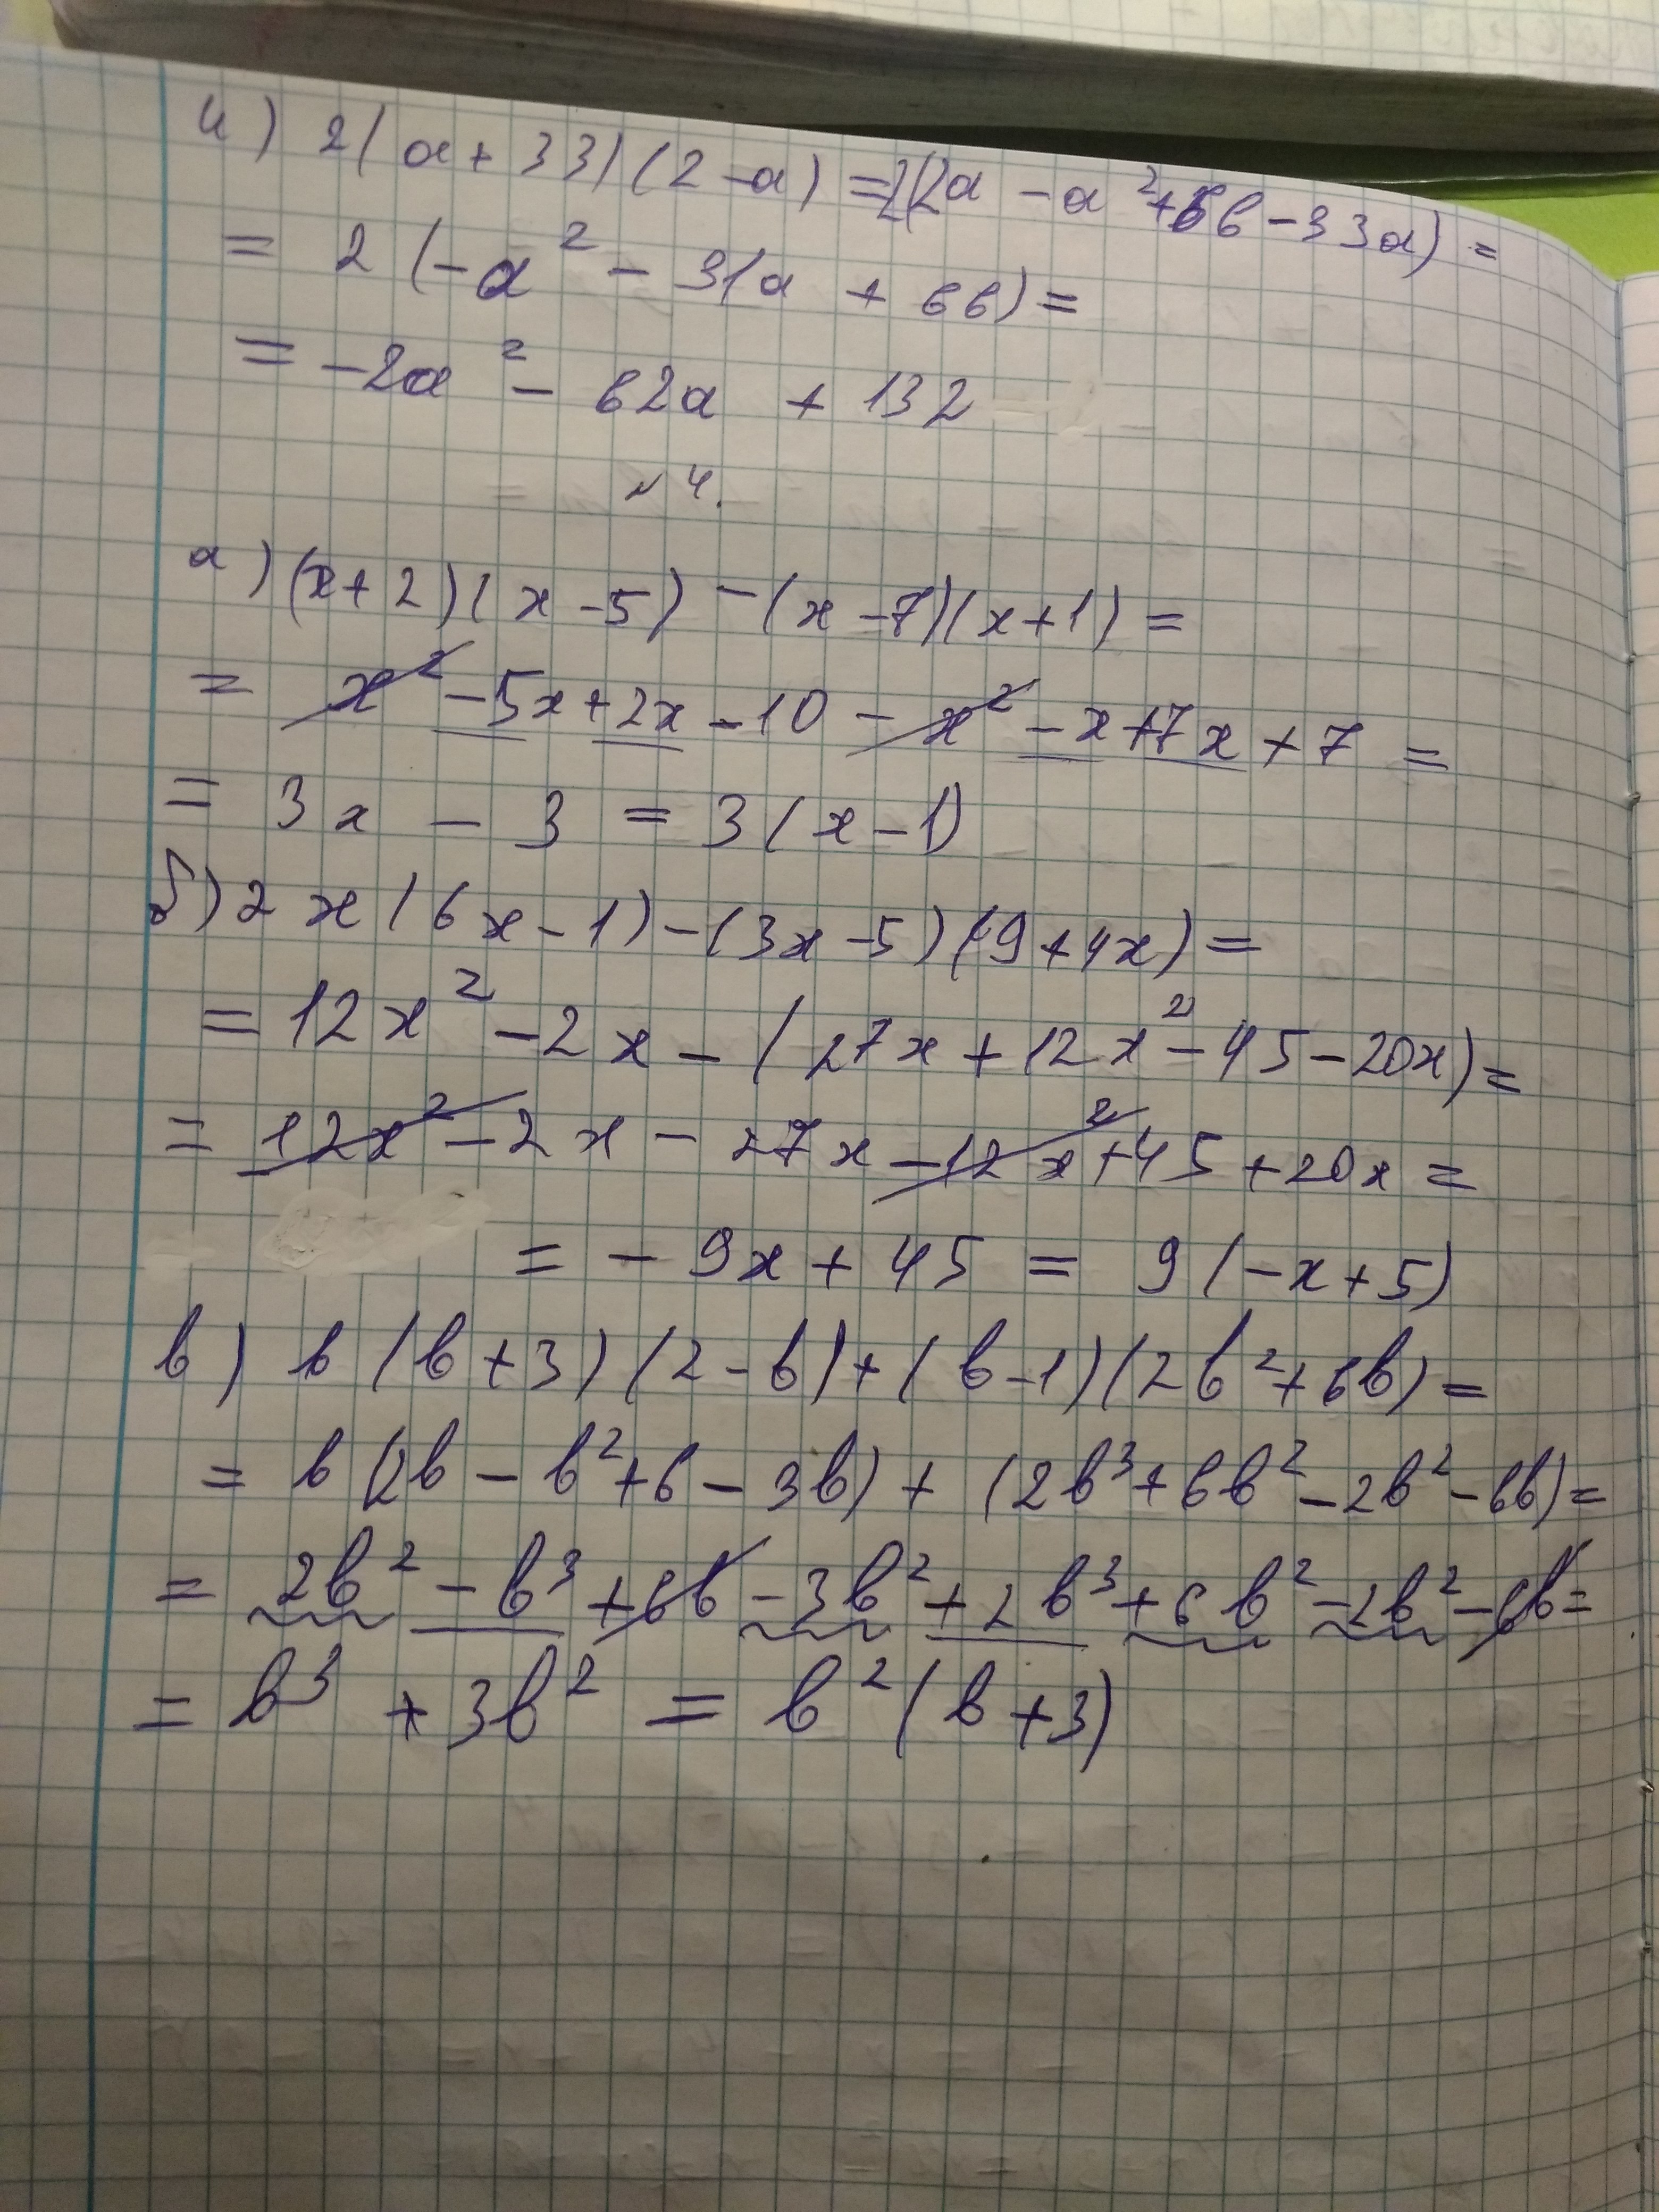 и) 2(a+33)(2-a)=2(2a-a²+66-33a)=
= 2(-a²-31a+66)=
= -2a²-62a+132
№4.
а) (x+2)(x-5)-(x-7)(x+1)=
= x²-5x+2x-10-x²-x+7x+7=
= 3x-3=3(x-1)
б) 2x(6x-1)-(3x-5)(9+4x)=
= 12x²-2x-(27x+12x²-45-20x)=
= 12x²-2x-27x-12x²+45+20x=
= -9x+45=9(-x+5)
в) b(b+3)(2-b)+(b-1)(2b²+6b)=
= b(2b-b²+6-3b)+(2b³+6b²-2b²-6b)=
= 2b²-b³+6b-3b²+2b³+6b²-2b²-6b=
= b³+3b²=b²(b+3)